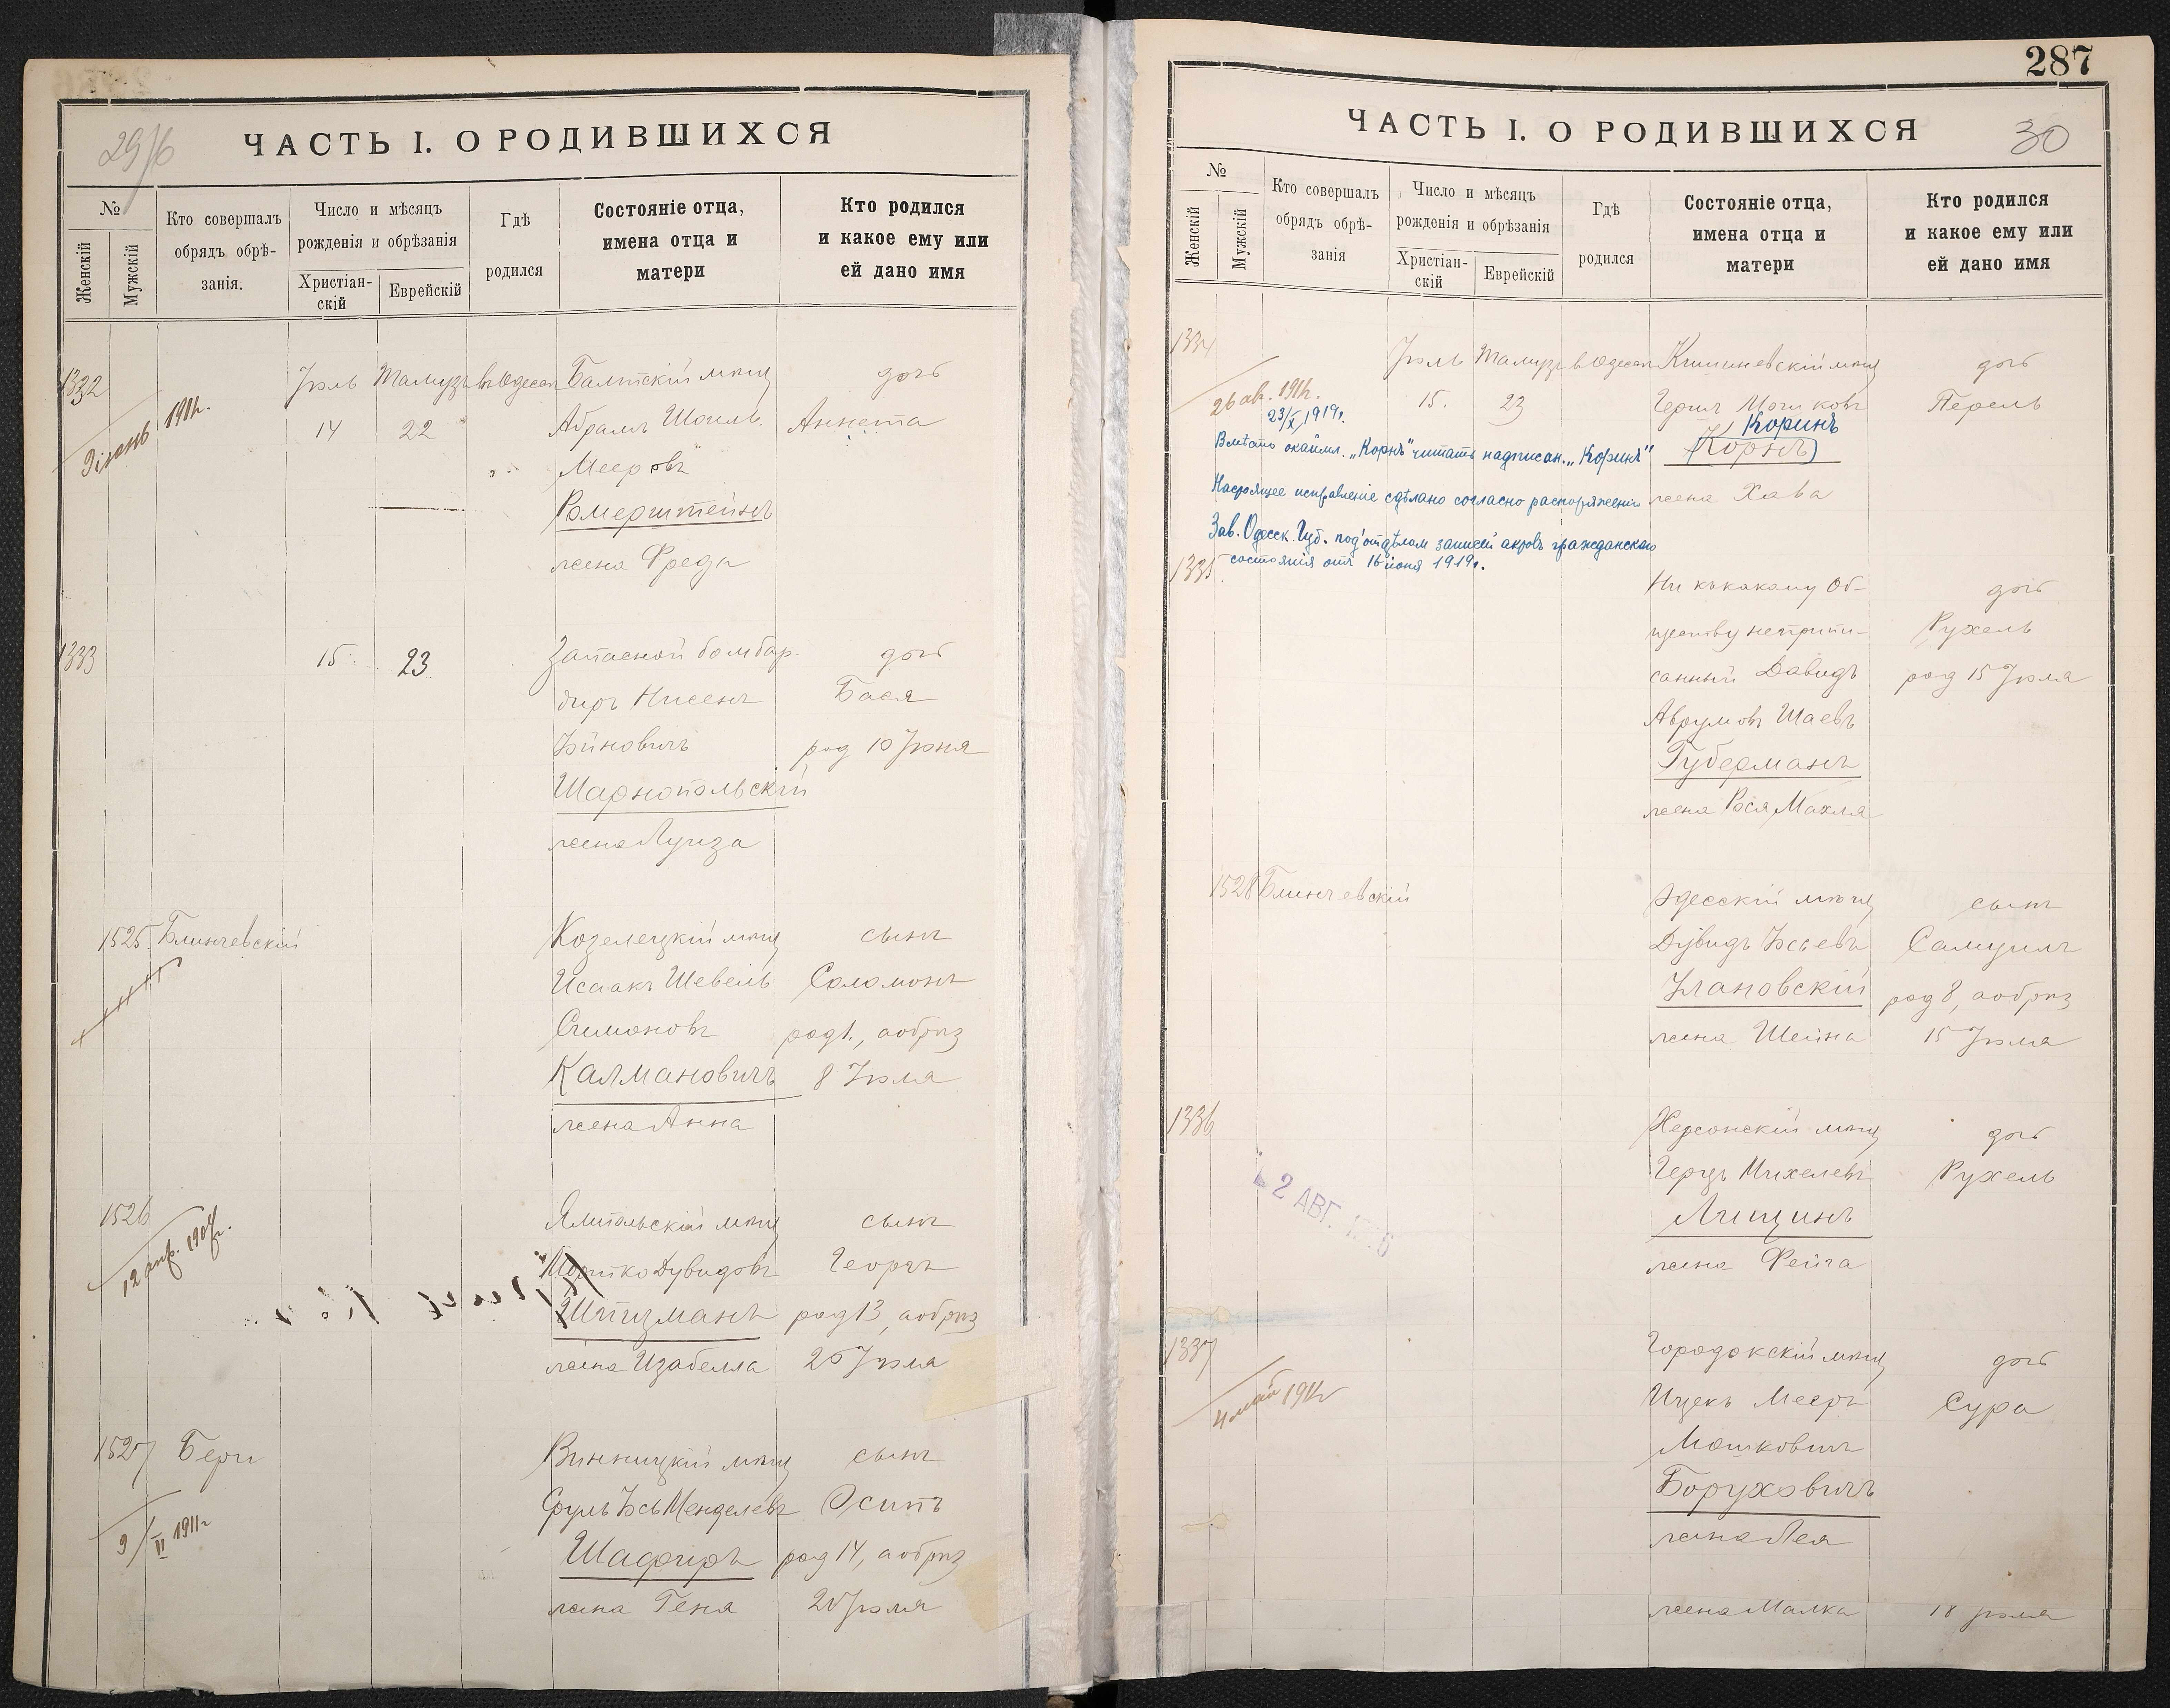 29/6
ЧАСТЬ I. О РОДИВШИХСЯ
№
Женскій
Мужскій
Кто совершалъ
обрядъ обрѣ-
занія.
Число и мѣсяцъ
рожденія и обрѣзанія
Христіан-
скій
Еврейскій
Гдѣ
родился
Состояніе отца,
имена отца и
матери
Кто родился
и какое ему или
ей дано имя
1332
1911г.
Іюль Тамузъ въ Одессѣ Балтскій мѣщ дочь
14 22 Абрамъ Шоилъ Аннета
Мееровъ
Ромерштейнъ
жена Фреда
1333 15 23 Запасной бомбар- дочь
диръ Нисенъ Бася
род 10 Іюня
Шарнопольскій
жена Луиза
1525 Блинчевскій Козелецкій мѣщ сынъ
Исаакъ Шевель Соломонъ
Симоновъ род 1, а обрѣз
Калмановичъ 8 Іюля
жена Анна
1526 Ямпольскій мѣщ сынъ
12 апр.
Мошко Дувидовъ Георгъ
Шпизманъ род 13, а обрѣз
жена Изабелла 20 Іюля
1527 Бери Винницкій мѣщ сынъ
9/II 1911г
Сруль Іось Менделевъ Осипъ
Шафиръ род 14, а обрѣз
жена Геня Іюля
287
30
ЧАСТЬ I. О РОДИВШИХСЯ
№
Женскій
Мужскій
Кто совершалъ
обрядъ обрѣ-
занія
Число и мѣсяцъ
рожденія и обрѣзанія
Христіан-
скій
Еврейскій
Гдѣ
родился
Состояніе отца,
имена отца и
матери
Кто родился
и какое ему или
ей дано имя
1334 Іюль Тамузъ въ Одессѣ Кишиневскій мѣщ дочь
26 ав. 1911г.
15. 23 Герш Мошковъ Перель
23/X 1919г.
Коринъ
(Корнъ)
Вмѣсто окаймл. „Корнъ" читать надписан. „Коринъ"
Настоящее исправленіе сдѣлано согласно распоряженію
жена Хава
Зав. Одесск. Губ. подъотдѣломъ записей актовъ гражданскаго
состоянія отъ 16 іюня 1919г.
1335 Ни къ какому об- дочь
ществу неприпи- Рухель
санный Давидъ род 15 Іюля
Аврумовъ Шаевъ
Губерманъ
жена Рося Махля
1528 Блинчевскій Одесскій мѣщ сынъ
Дувидъ Іосьевъ Самуилъ
Улановскій род 8, а обрѣз
жена Шейна 15 Іюля
1336 Херсонскій мѣщ дочь
Герцъ Михелевъ Рухель
2 АВГ.
Лищинъ
жена Фейга
1337 Городокскій мѣщ дочь
4 май
Ицекъ Мееръ Сура
Мошковичъ
Боруховичъ
жена Лея
жена Малка 18 Іюля